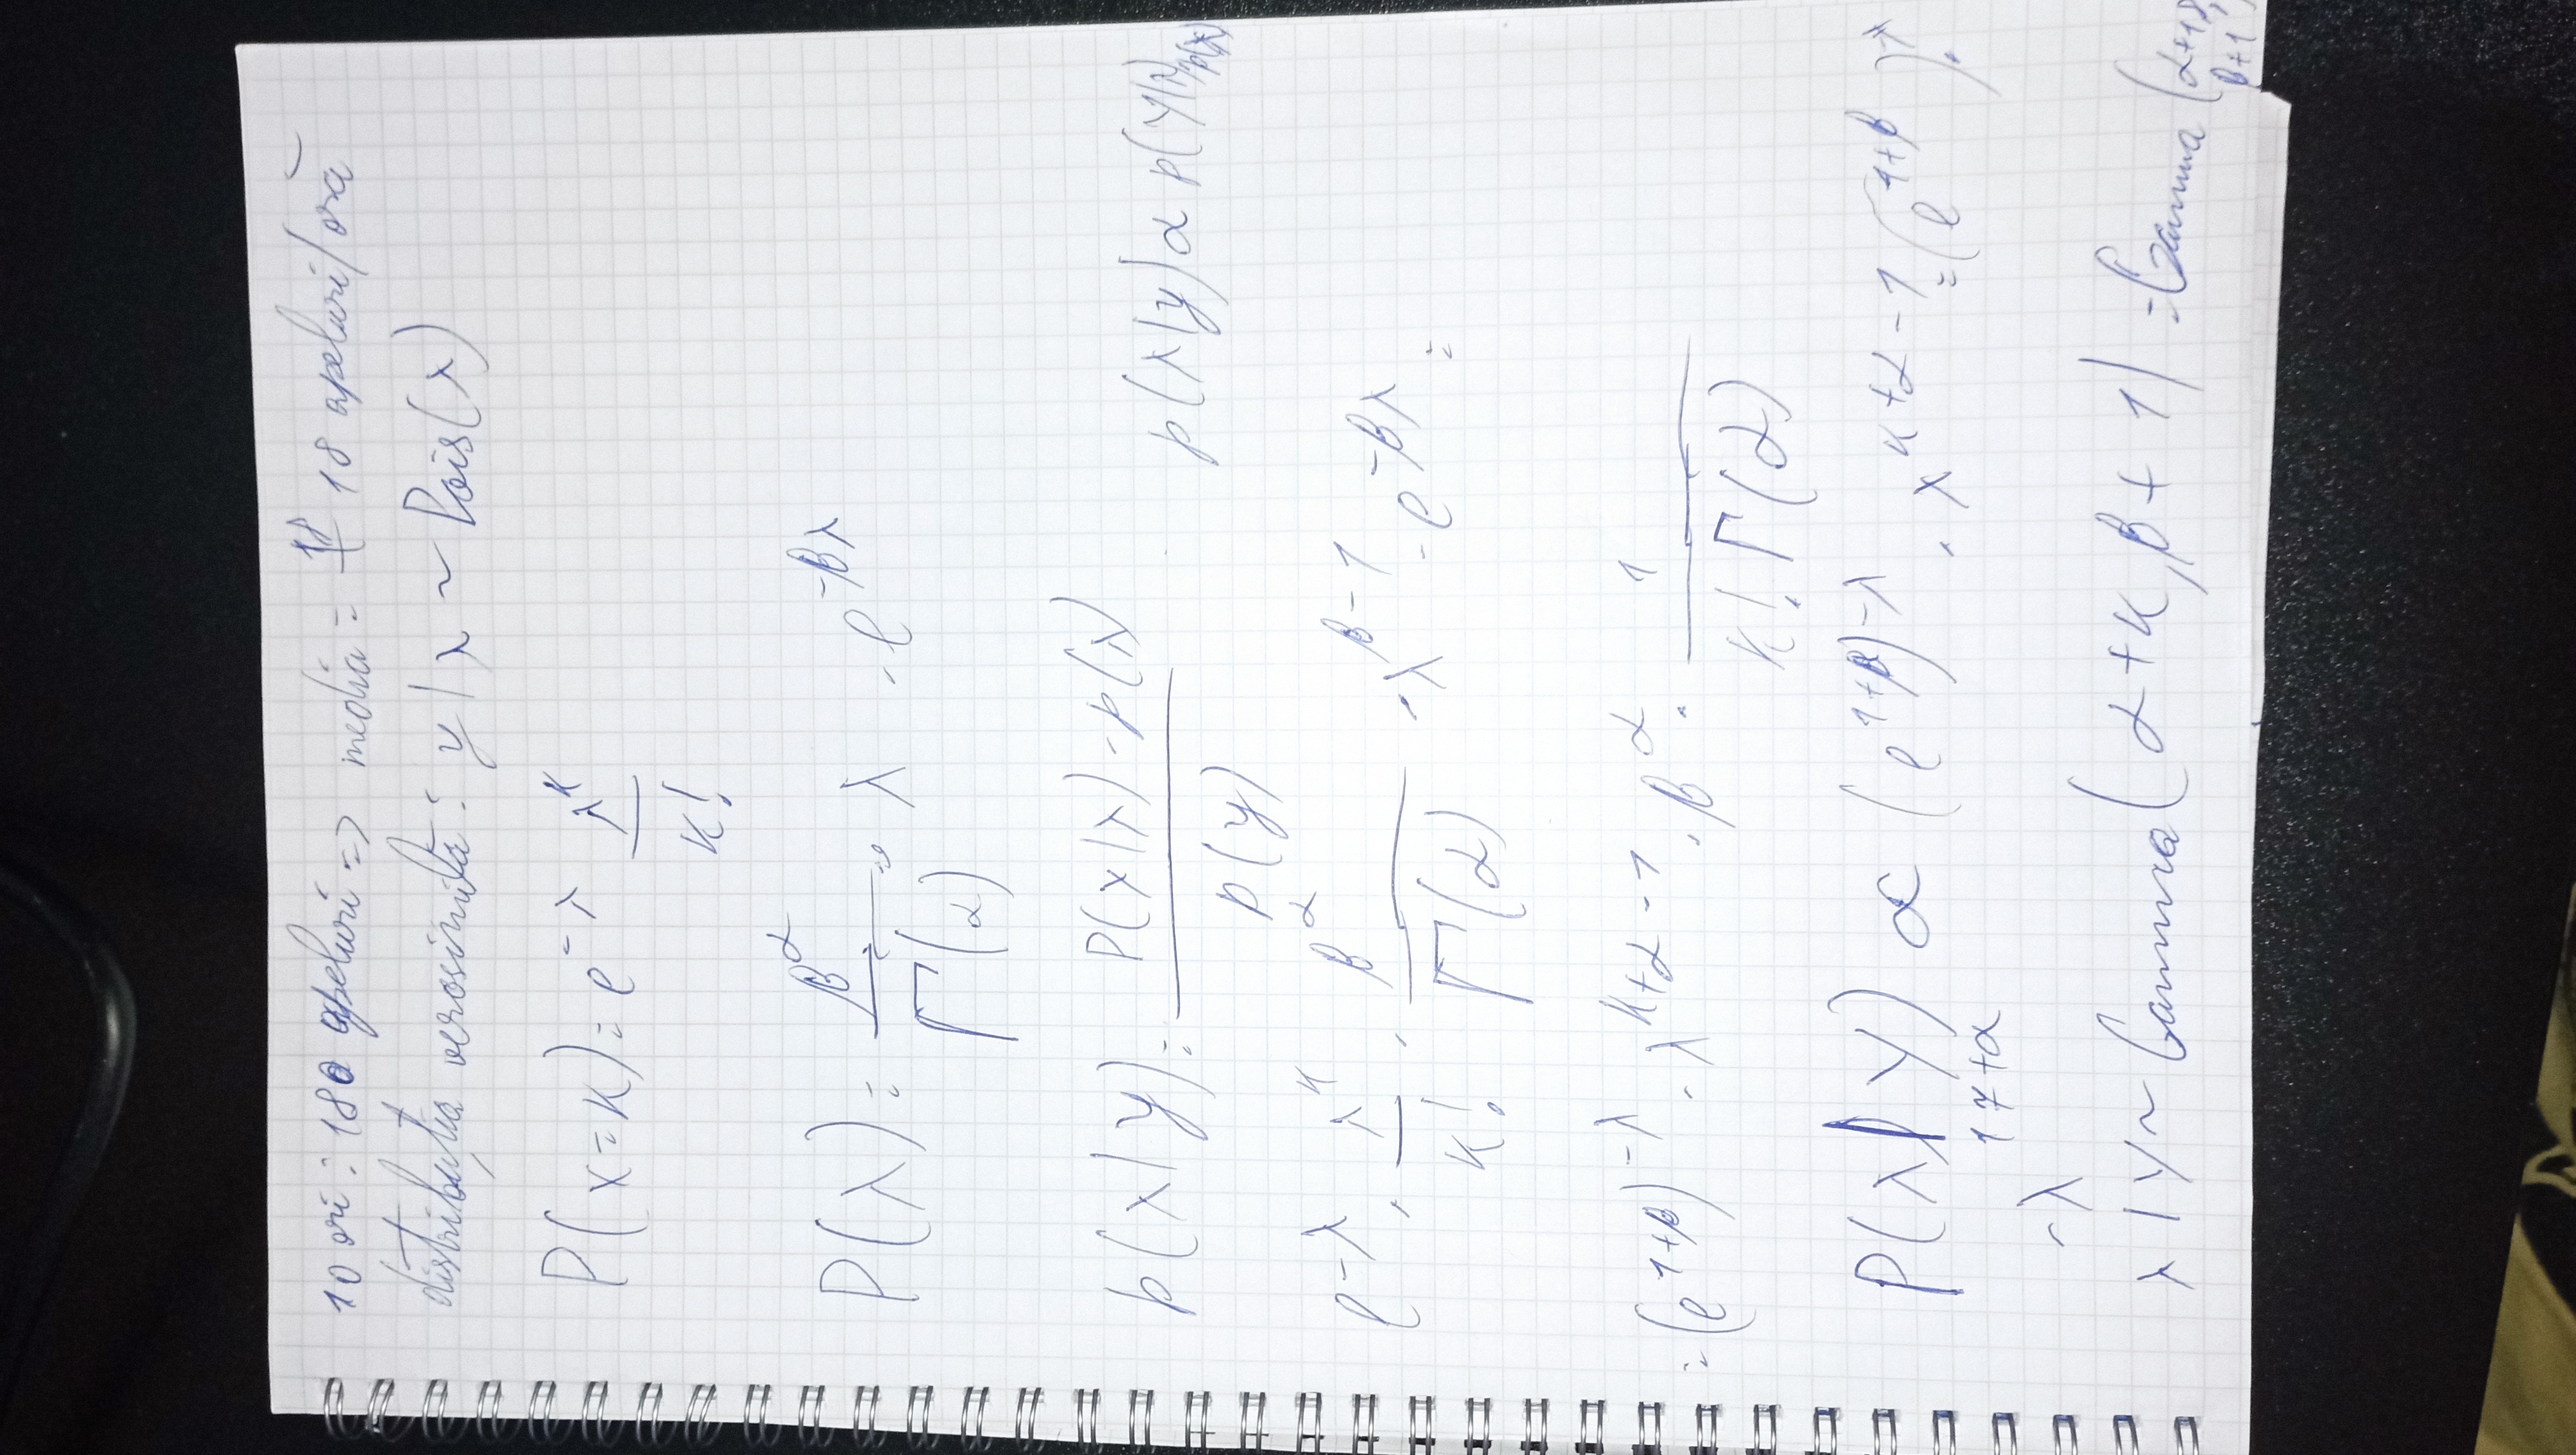 10 ori : 180 apeluri => media = 18 apeluri/oră
distribuția verosimilă : y | λ ~ Pois(λ)
P(x=k) = e^{-λ} λ^k / k!
P(λ) = β^α / Γ(α) · λ · e^{-βλ}
p(λ|y) = P(x|λ) · p(λ) / p(y)    p(λ|y) α p(y|λ) p(λ)
e^{-λ} · λ^k / k! · β^α / Γ(α) · λ^{β-1} · e^{-βλ} =
= (e^{1+β})^{-λ} · λ^{k+α-1} · β^α · 1 / k! Γ(α)
P(λ|Y) ∝ (e^{1+β})^{-λ} · λ^{k+α-1} = (e^{1+β})^{-λ} ·
17+α
·λ
λ | Y ~ Gamma(α+k, β+1) = Gamma(α+18, β+1)